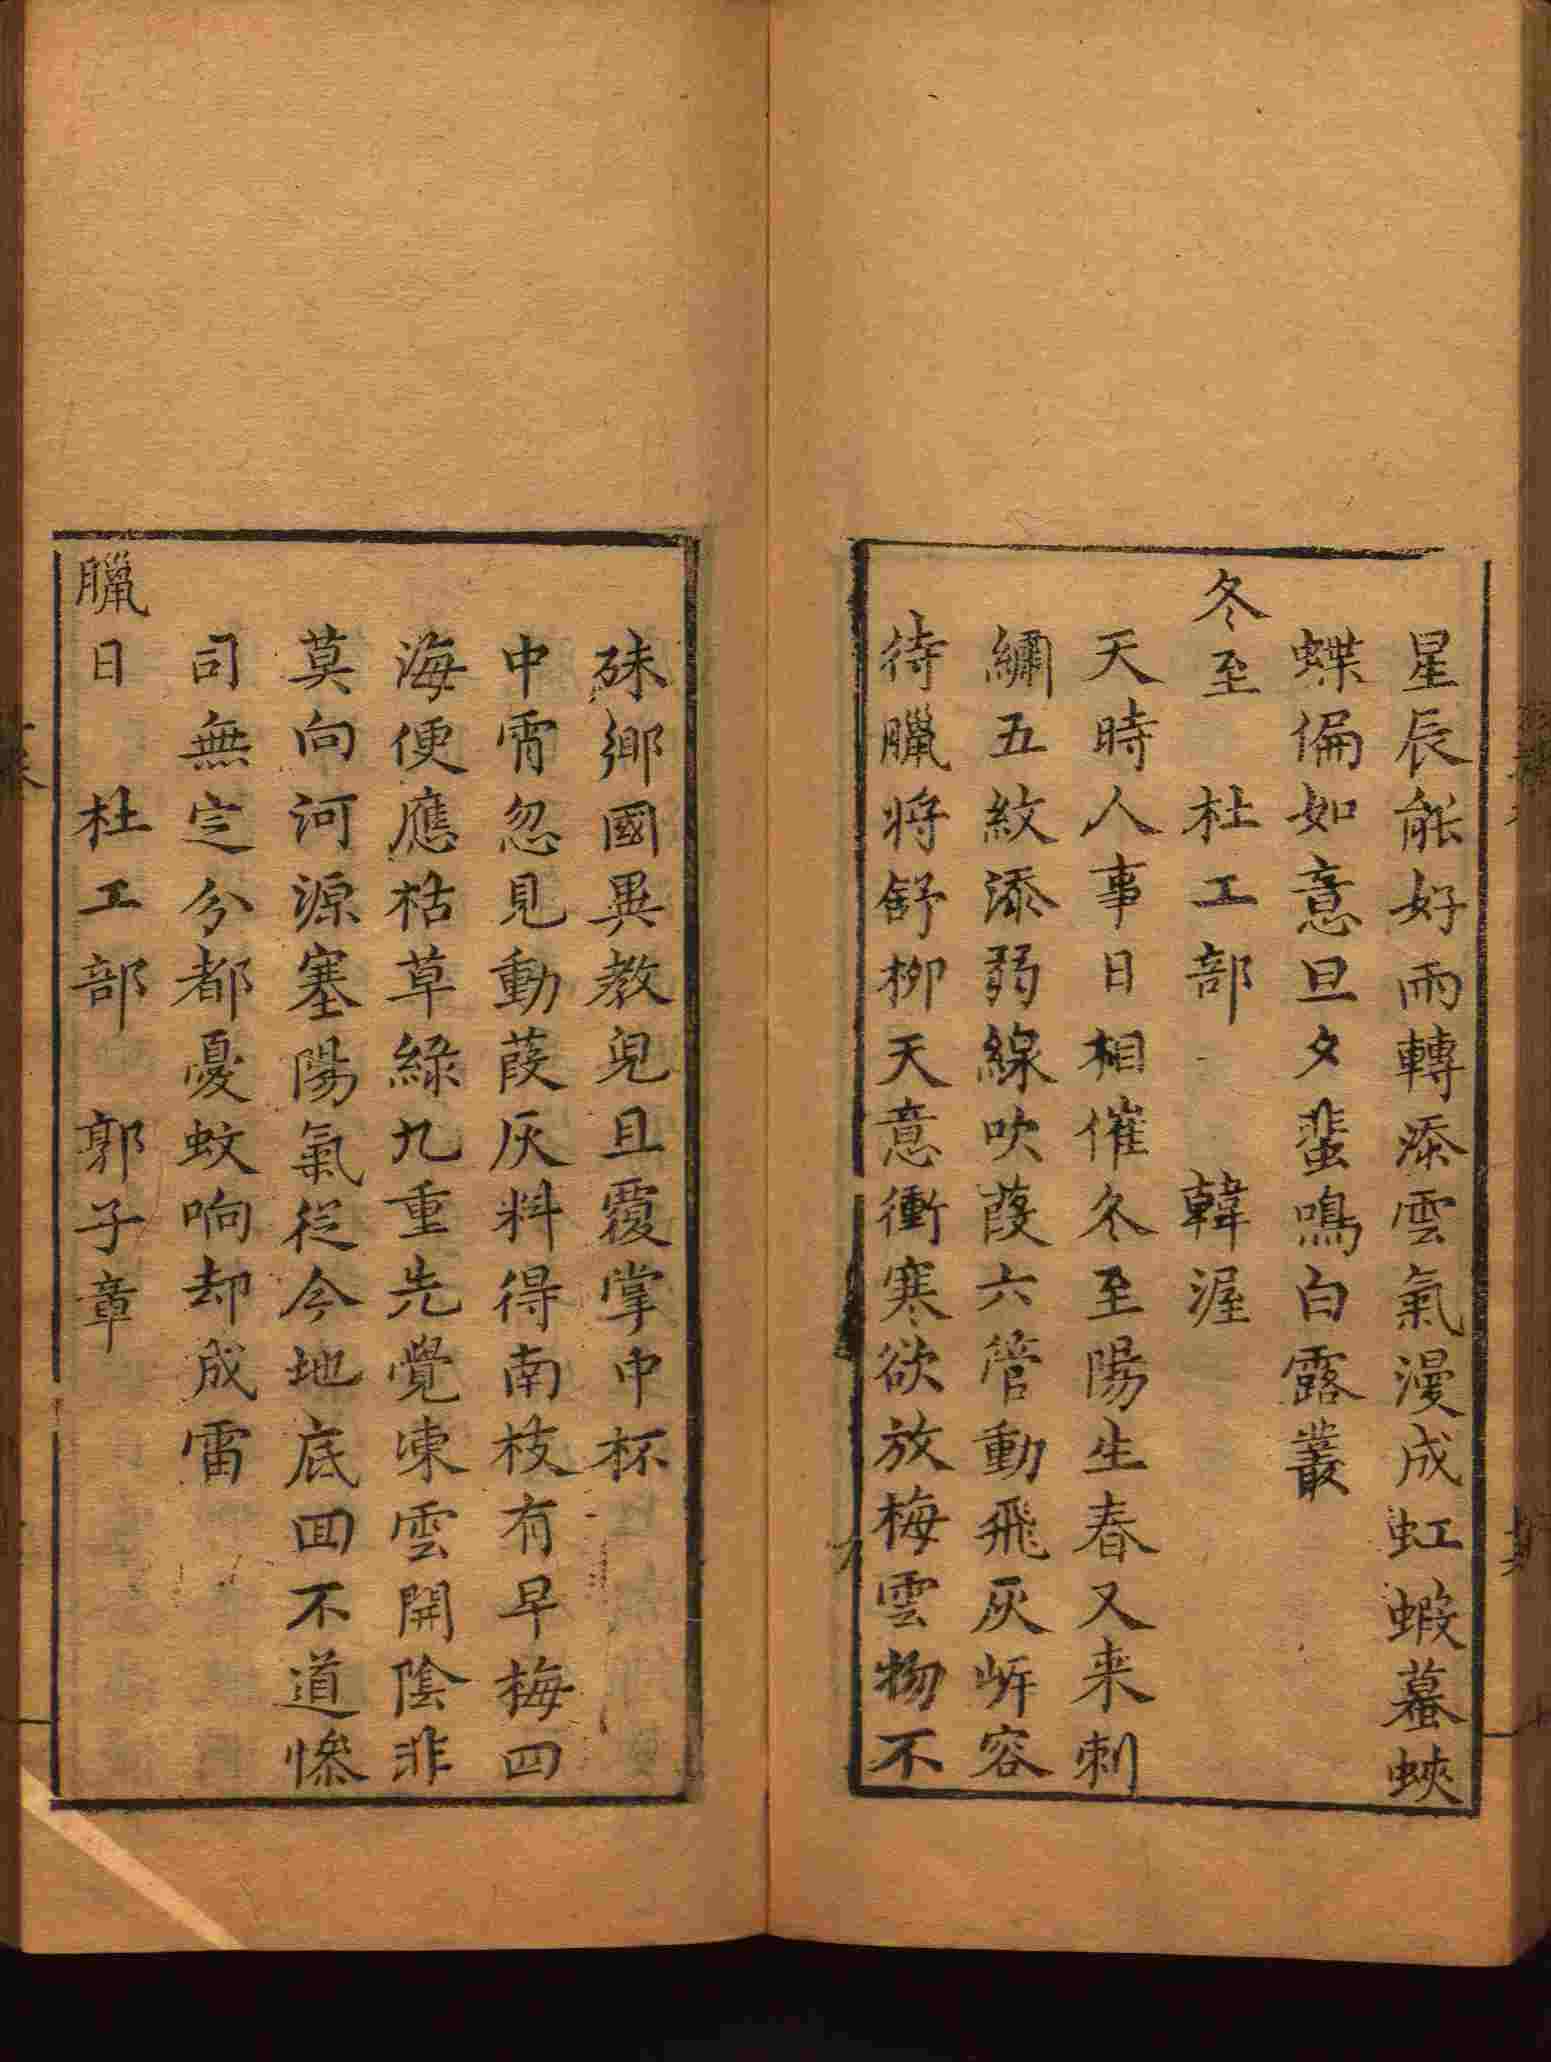 星辰能好雨轉添雲氣漫成虹蝦蟇蛺
蝶偏如意旦夕蜚鳴白露叢
冬至 杜工部 韓渥
天時人事日相催冬至陽生春又来刺
繡五紋添弱線吹葭六管動飛灰岍容
待臘將舒柳天意衝寒欲放梅雲物不
殊鄉國異教兒且覆掌中杯
中霄忽見動葭灰料得南枝有早梅四
海便應枯草綠九重先覺凍雲開陰非
莫向河源塞陽氣從今地底囬不道慘
司無定分都憂蚊响却成雷
臘日 杜工部 郭子章